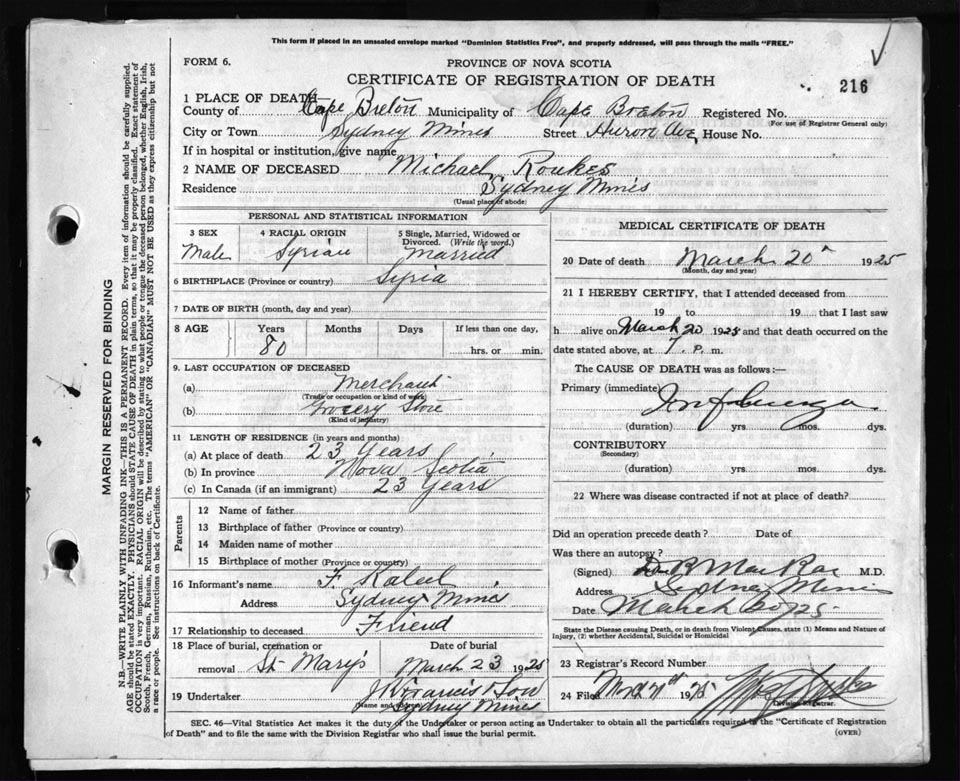 This form if placed in an unsealed envelope marked "Dominion Statistics Free", and properly addressed, will pass through the mails "FREE."
FORM 6.
PROVINCE OF NOVA SCOTIA
CERTIFICATE OF REGISTRATION OF DEATH
216
1 PLACE OF DEATH
County of Cape Breton Municipality of Cape Breton Registered No.
For use of Registrar General only)
City or Town Sydney Mines Street Huron Ave, House No.
If in hospital or institution, give name
2 NAME OF DECEASED Michael Roukes
Residence Sydney Mines
(Usual place of abode)
PERSONAL AND STATISTICAL INFORMATION
3 SEX
Male
4 RACIAL ORIGIN
Syrian
5 Single, Married, Widowed or Divorced. (Write the word.)
Married
6 BIRTHPLACE (Province or country) Syria
7 DATE OF BIRTH (month, day and year)
8 AGE Years Months Days If less than one day,
80 hrs. or min.
9. LAST OCCUPATION OF DECEASED
(a) Merchant
(Trade or occupation or kind of work)
(b) Grocery Store
(Kind of industry)
11 LENGTH OF RESIDENCE (in years and months)
(a) At place of death 23 Years
(b) In province Nova Scotia
(c) In Canada (if an immigrant) 23 Years
Parents
12 Name of father
13 Birthplace of father (Province or country)
14 Maiden name of mother
15 Birthplace of mother (Province or country)
16 Informant's name F. Kaleel
Address Sydney Mines
17 Relationship to deceased Friend
18 Place of burial, cremation or removal St Mary's
Date of burial
March 23 1925
19 Undertaker J W Francis & Son
(Name and address) Sydney Mines
MEDICAL CERTIFICATE OF DEATH
20 Date of death March 20" 1925
(Month, day and year)
21 I HEREBY CERTIFY, that I attended deceased from
19 to 19 that I last saw
h alive on March 20 1925 and that death occurred on
date stated above, at 7 P. m.
The CAUSE OF DEATH was as follows:—
Primary (immediate) Influenza
(duration) yrs. mos. dys.
CONTRIBUTORY
(Secondary)
(duration) yrs. mos. dys.
22 Where was disease contracted if not at place of death?
Did an operation precede death? Date of
Was there an autopsy?
(Signed) R MacRae M.D.
Address Sydney Mines
Date March
State the Disease causing Death, or in death from Violent Causes, state (1) Means and Nature of Injury, (2) whether Accidental, Suicidal or Homicidal
23 Registrar's Record Number
24 Filed 1925
Division Registrar.
SEC. 46—Vital Statistics Act makes it the duty of the Undertaker or person acting as Undertaker to obtain all the particulars required in the "Certificate of Registration
of Death" and to file the same with the Division Registrar who shall issue the burial permit.
(OVER)
MARGIN RESERVED FOR BINDING
N.B.—WRITE PLAINLY WITH UNFADING INK—THIS IS A PERMANENT RECORD. Every item of information should be carefully supplied.
AGE should be stated EXACTLY. PHYSICIANS should STATE CAUSE OF DEATH in plain terms, so that it may be properly classified. Exact statement of
OCCUPATION is very important. RACIAL ORIGIN will be described by stating to what people or tongue the deceased person belonged, whether English, Irish,
Scotch, French, German, Russian, Ruthenian, etc. The terms "AMERICAN" OR "CANADIAN" MUST NOT BE USED as they express citizenship but not
a race or people. See instructions on back of Certificate.